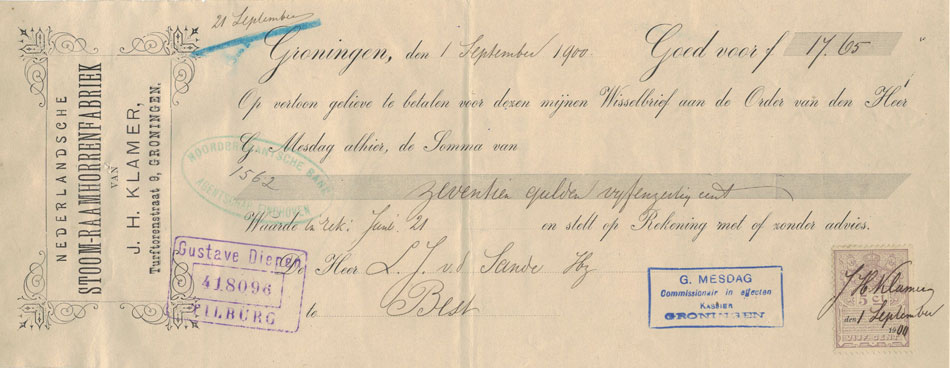 NEDERLANDSCHE
STOOM-RAAMHORRENFABRIEK
VAN
J. H. KLAMER,
Turftorenstraat 9, GRONINGEN.
21 September
Groningen, den 1 September 1900. Goed voor f 17.65
Op vertoon gelieve te betalen voor dezen mijnen Wisselbrief aan de Order van den Heer
G. Mesdag alhier, de Somma van
NOORDBRABANTSCHE BANK
1562
AGENTSCHAP EINDHOVEN
zeventien gulden vyfenzestig cent
Waarde in rek: Juni 21 en stelt op Rekening met of zonder advies.
De Heer L. J. v.d. Sande Hz
te Best
Gustave Dienen
418096
TILBURG
G. MESDAG
Commissionair in effecten
KASSIER
GRONINGEN
5 CT
J H Klamer
den 1 September
1900
VIJF CENT